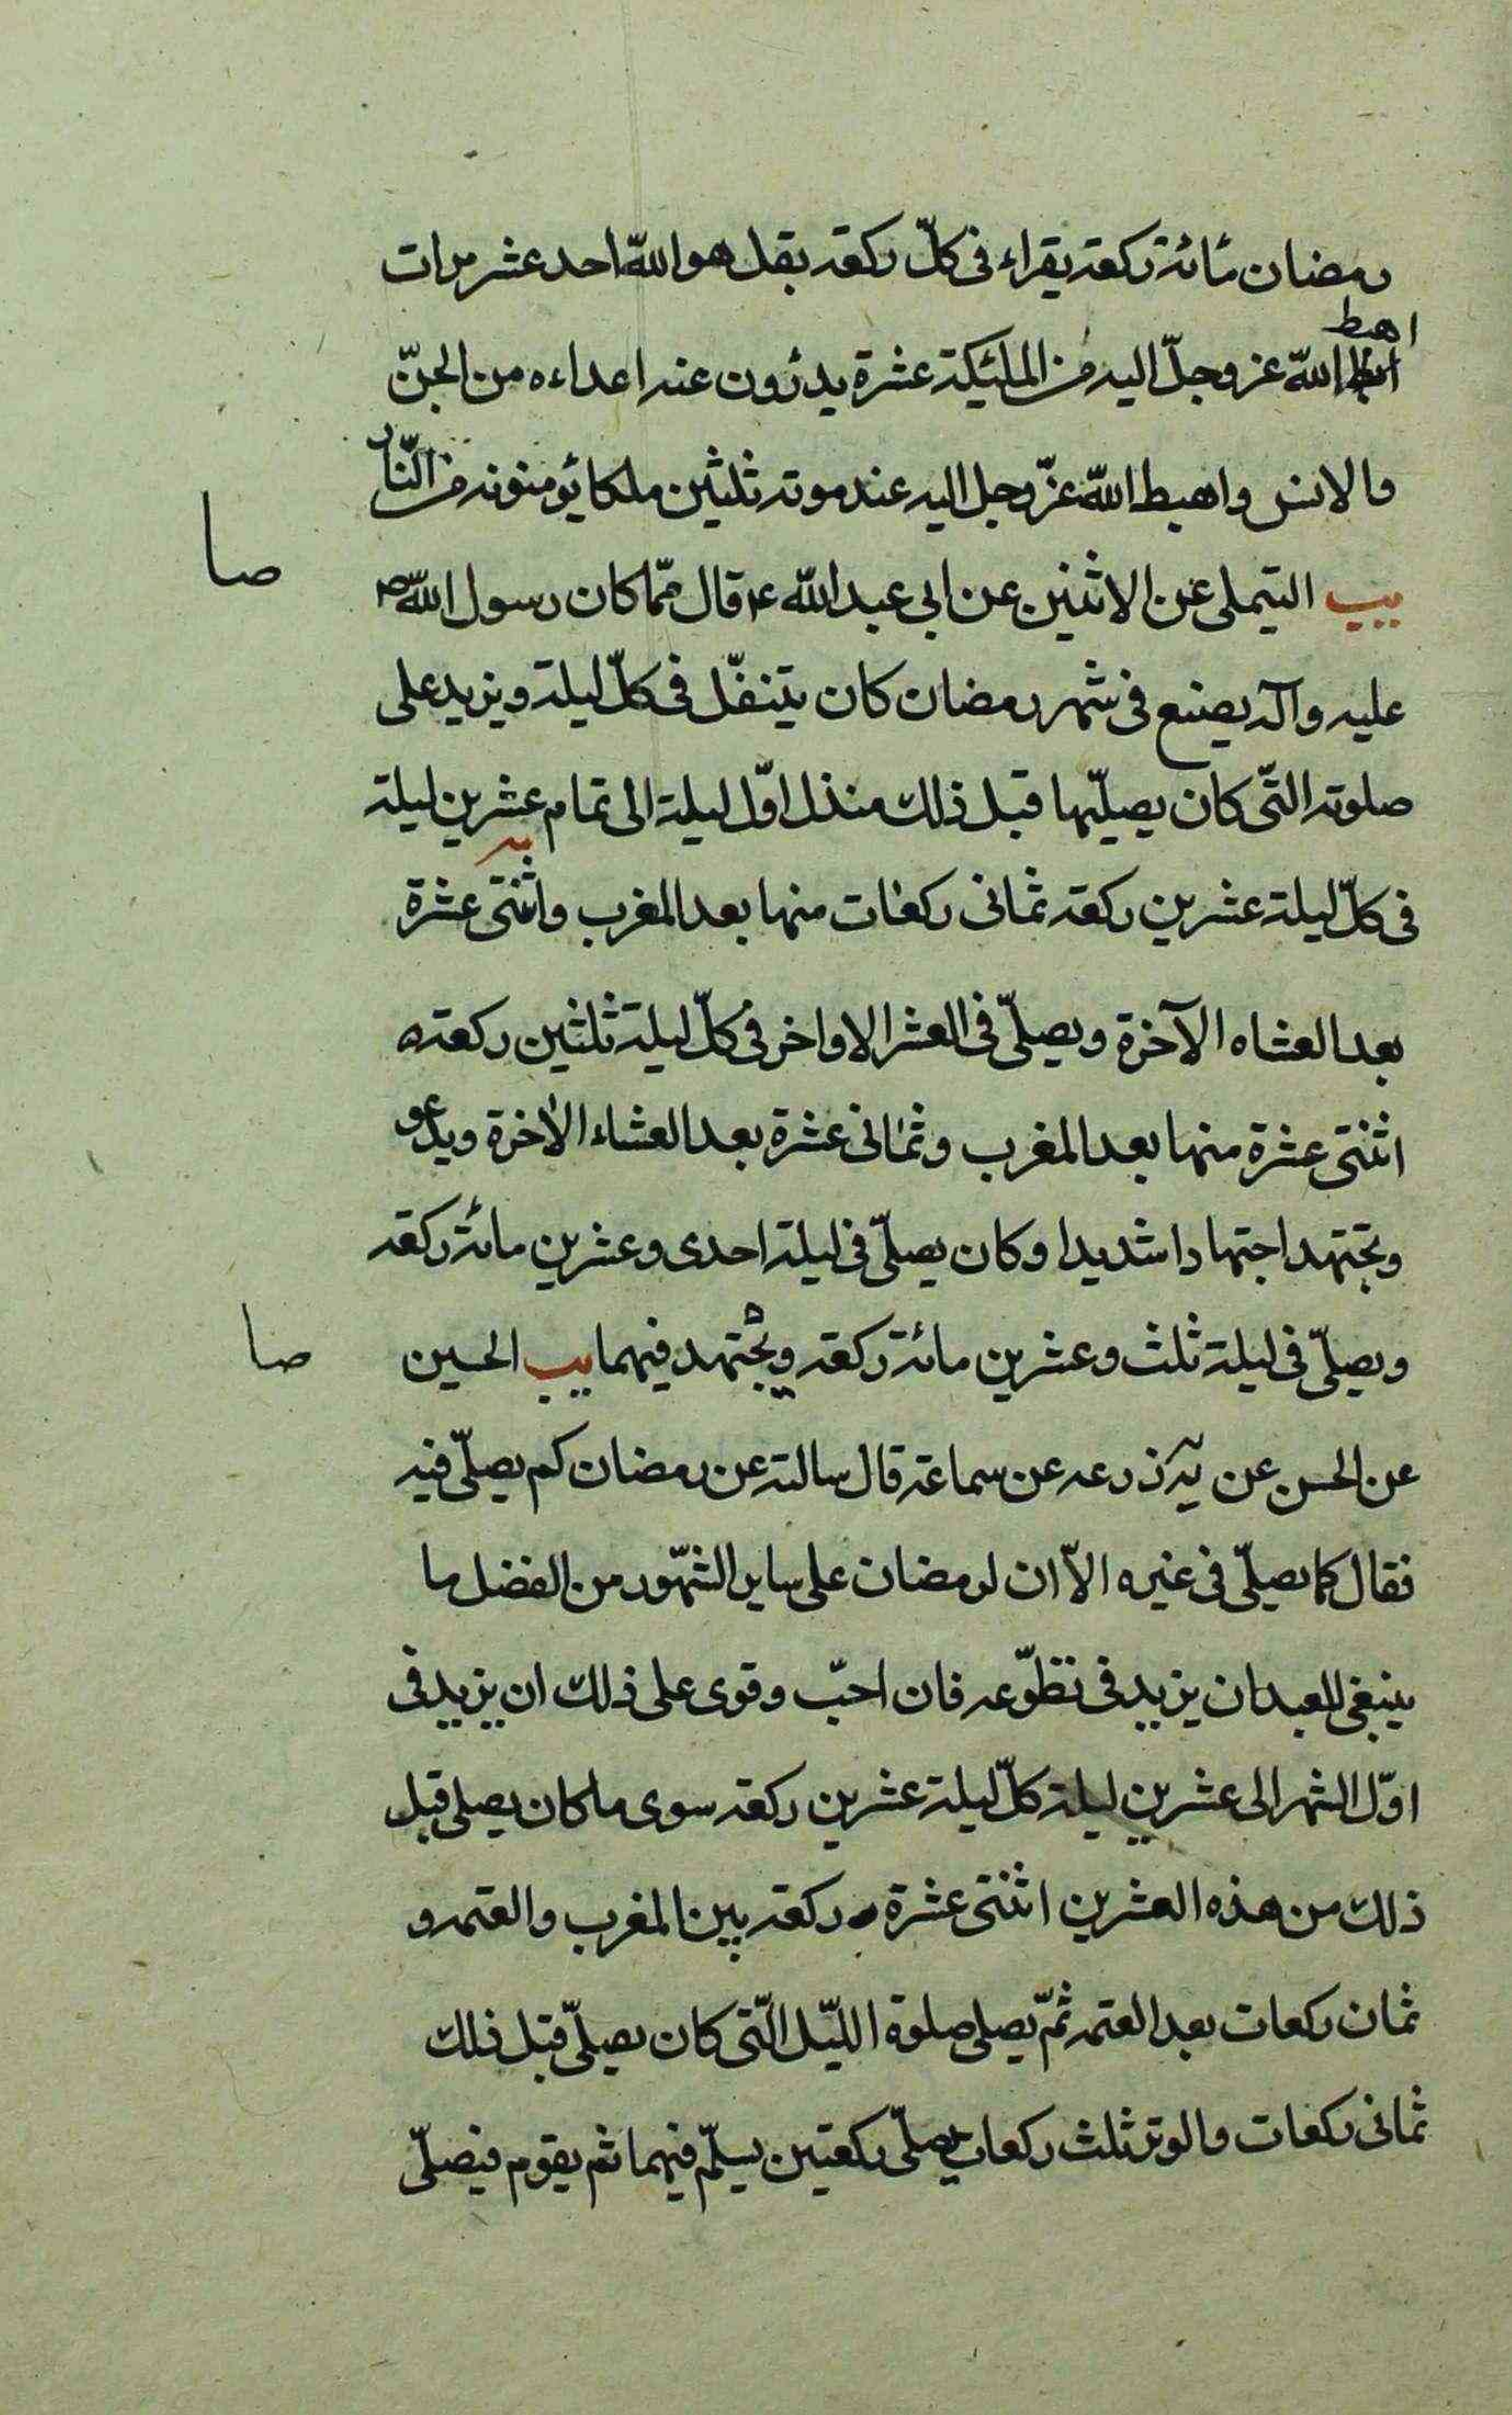 رمضان مائة ركعة يقراء فى كلّ ركعة بقل هو اللّه احد عشر مرات
اهبط
اللّه عز وجلّ اليه من الملئكة عشرة يدرؤن عنه اعداءه من الجنّ
والانس واهبط اللّه عزّ وجل اليه عند موته ثلثين ملكا يؤمنونه من النّار
صا
يب التيملى عن الاثنين عن ابى عبد اللّه ع قال ممّا كان رسول اللّه ص
عليه وآله يصنع فى شهر رمضان كان يتنفّل فى كلّ ليلة ويزيد على
صلوته الّتى كان يصلّيها قبل ذلك منذ اوّل ليلة الى تمام عشرين ليلة
فى كلّ ليلة عشرين ركعة ثمانى ركعات منها بعد المغرب واثنتى عشرة
بعد العشاه الآخرة ويصلّى فى العشر الاواخر فى كلّ ليلة ثلثين ركعة
اثنتى عشرة منها بعد المغرب وثمانى عشرة بعد العشاء الاخرة ويدعو
ويجتهد اجتهادا شديدا وكان يصلّى فى ليلة احدى وعشرين مائة ركعة
ويصلّى فى ليلة ثلث وعشرين مائة ركعة ويجتهد فيهما يب الحسين
صا
عن الحسن عن زرعه عن سماعة قال سالته عن رمضان كم يصلّى فيه
فقال كما يصلّى فى غيره الاّ ان لرمضان على ساير الشّهور من الفضل ما
ينبغى للعبد ان يزيد فى تطوّعه فان احبّ وقوى على ذلك ان يزيد فى
اوّل الشهر الى عشرين ليلة كلّ ليلة عشرين ركعة سوى ما كان يصلى قبل
ذلك من هذه العشرين اثنتى عشرة ركعة بين المغرب والعتمه و
ثمان ركعات بعد العتمه ثمّ يصلى صلوة اللّيل الّتى كان يصلّى قبل ذلك
ثمانى ركعات والوتر ثلث ركعات يصلّى ركعتين يسلّم فيهما ثم يقوم فيصلّى